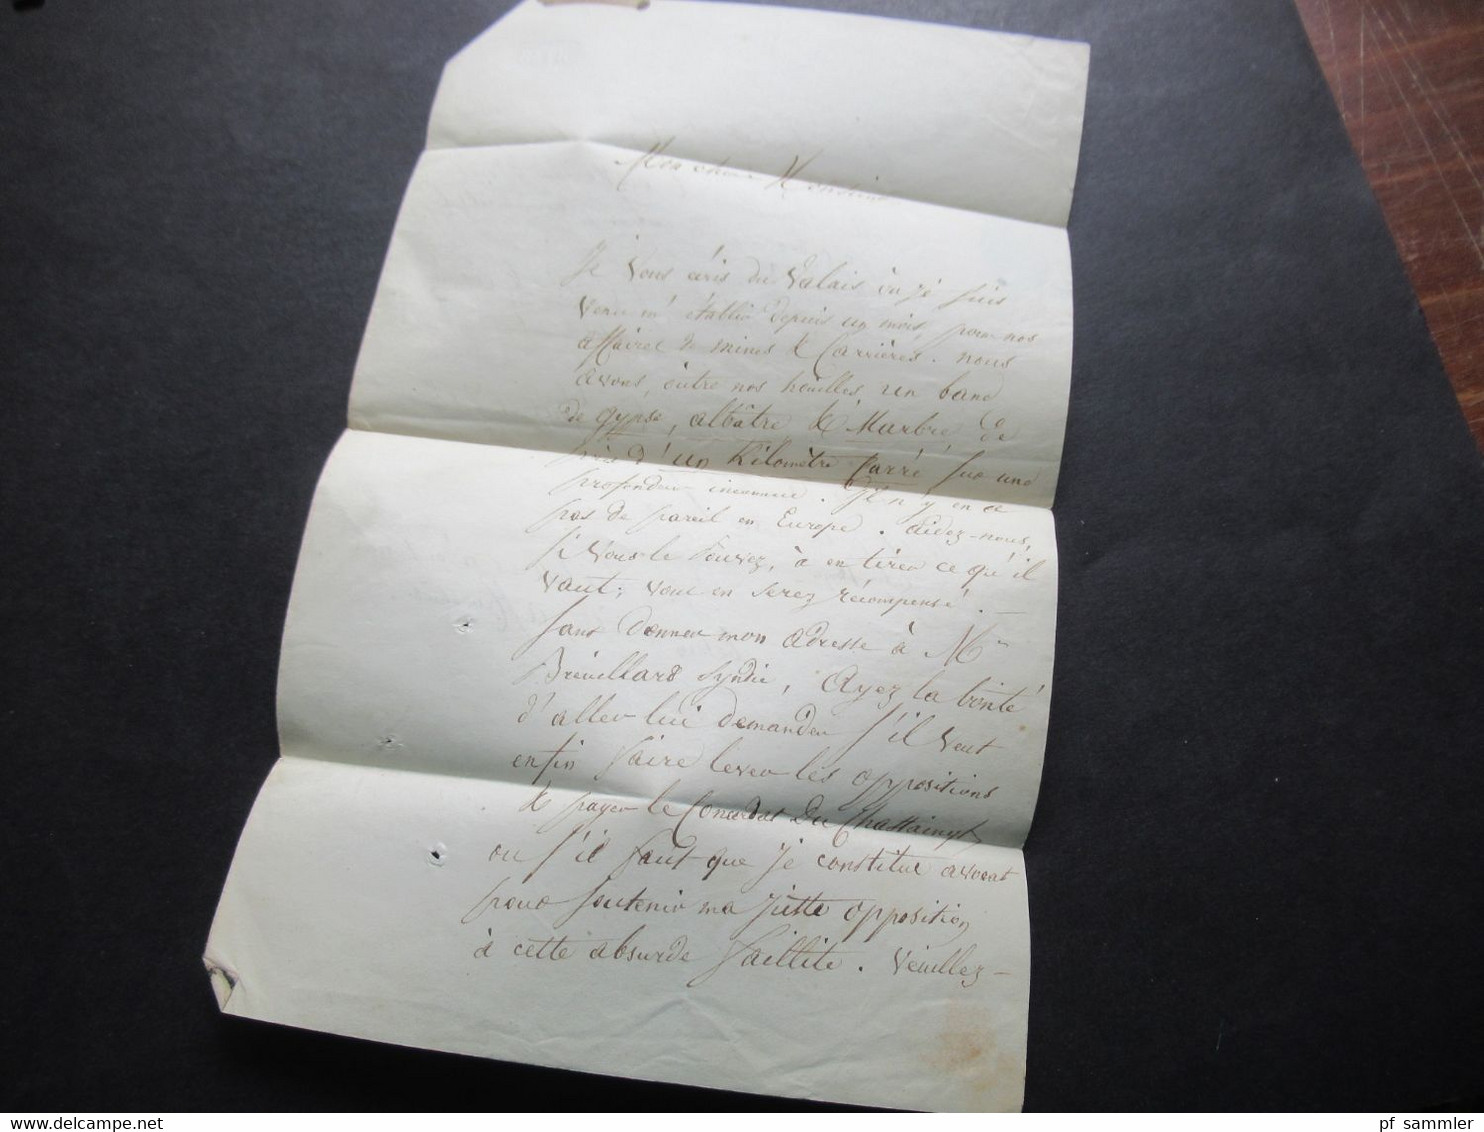 Mon cher Monsieur
Je vous écris du Valais où je suis
venu m'établir depuis un mois, pour nos
affaires de mines & Carrières. nous
avons, outre nos houilles, un banc
de gypse, albâtre & Marbre, de
près d'un Kilomètre Carré sur une
profondeur inconnue. Il n'y en a
pas de pareil en Europe. aidez-nous,
si vous le Pouvez, à en tirer ce qu'il
vaut; vous en serez récompensé. —
Sans donner mon adresse à Mr
Breuillard Syndic, Ayez la bonté
d'aller lui demander s'il veut
enfin faire lever les oppositions
& payer le Concordat Du
ou s'il faut que je constitue avocat
pour soutenir ma juste opposition
à cette absurde faillite. Veuillez-
pf sammler